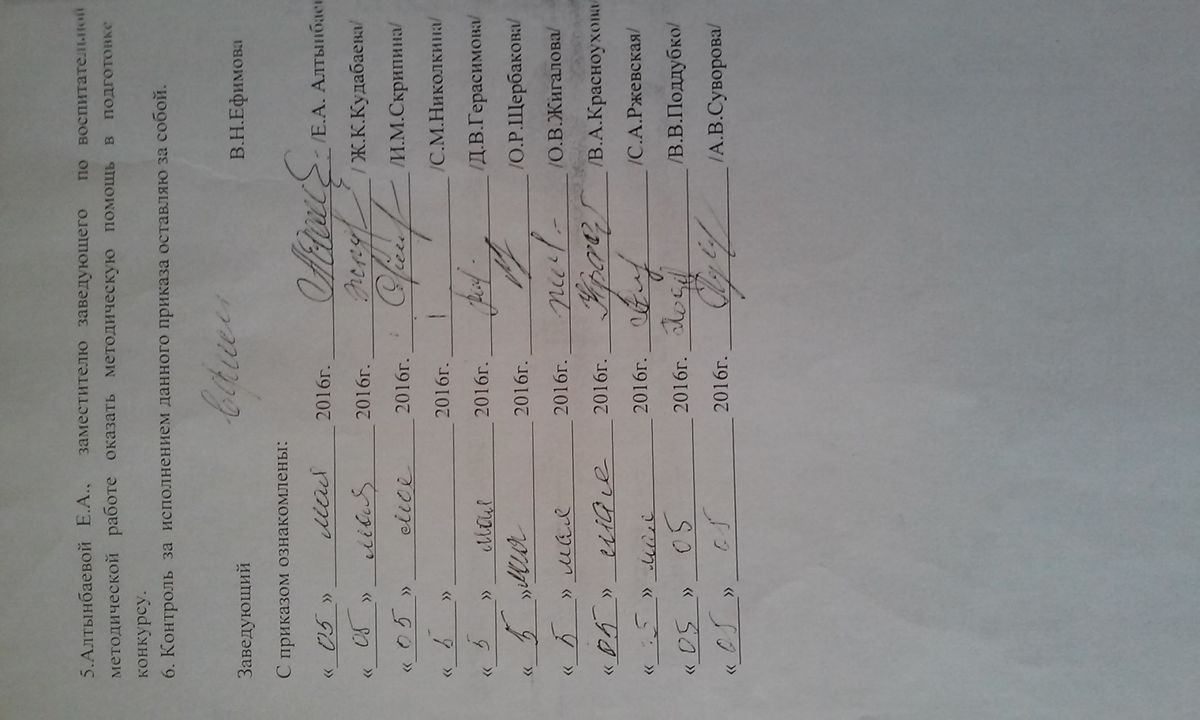 5.Алтынбаевой Е.А., заместителю заведующего по воспитательной
методической работе оказать методическую помощь в подготовке
конкурсу.
6. Контроль за исполнением данного приказа оставляю за собой.
Заведующий В.Н.Ефимова
С приказом ознакомлены:
« 05 » мая 2016г. /Е.А. Алтынбаев
« 05 » мая 2016г. / Ж.К.Кудабаева/
« 05 » мая 2016г. /И.М.Скрипина/
« 5 » 2016г. /С.М.Николкина/
« 5 » мая 2016г. /Д.В.Герасимова/
« 5 » мая 2016г. /О.Р.Щербакова/
« 5 » мая 2016г. /О.В.Жигалова/
« 05 » мая 2016г. /В.А.Красноухова/
« 05 » мая 2016г. /С.А.Ржевская/
« 05 » 05 2016г. /В.В.Поддубко/
« 05 » 05 2016г. /А.В.Суворова/